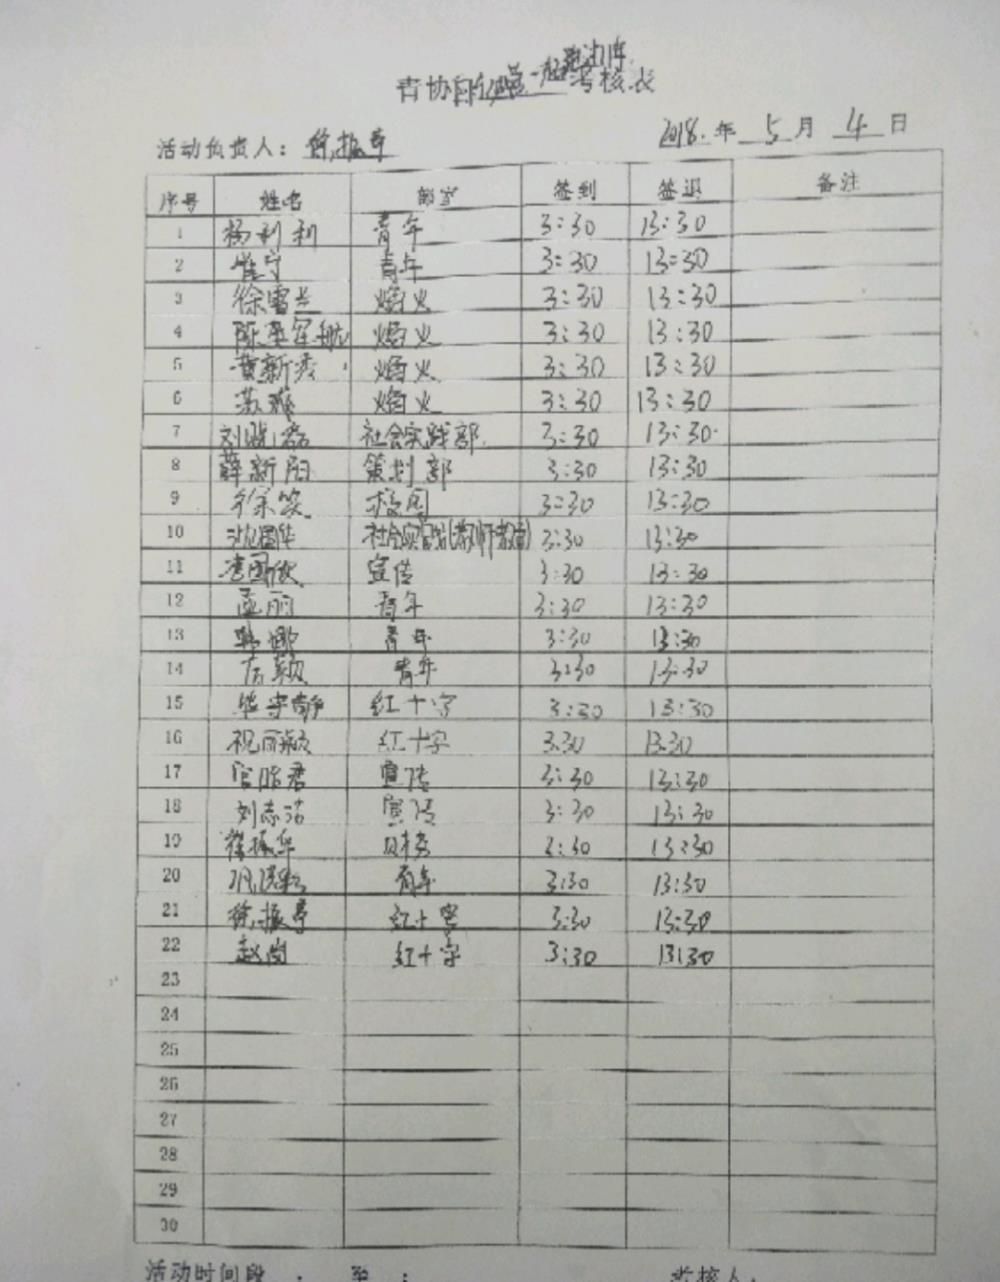 青协 一起 考核表
活动负责人：徐振尊 2018.年 5 月 4 日
序号 姓名 部室 签到 签退 备注
1 杨利利 青年 3:30 13:30
2 崔宁 青年 3:30 13:30
3 徐雪兰 焰火 3:30 13:30
4 航 焰火 3:30 13:30
5 黄新秀 焰火 3:30 13:30
6 苏 焰火 3:30 13:30
7 刘 社会实践部 3:30 13:30
8 薛新阳 策划部 3:30 13:30
9 徐笑 校园 3:30 13:30
10 沈国华 社会实践(教师教育) 3:30 13:30
11 李国俊 宣传 3:30 13:30
12 孟丽 青年 3:30 13:30
13 韩娜 青年 3:30 13:30
14 颖 青年 3:30 13:30
15 静 红十字 3:30 13:30
16 祝丽颖 红十字 3:30 13:30
17 官 君 宣传 3:30 13:30
18 刘志洁 宣传 3:30 13:30
19 振华 3:30 13:30
20 青年 3:30 13:30
21 徐振尊 红十字 3:30 13:30
22 赵岗 红十字 3:30 13:30
23
24
25
26
27
28
29
30
活动时间段 : 至 : 考核人: